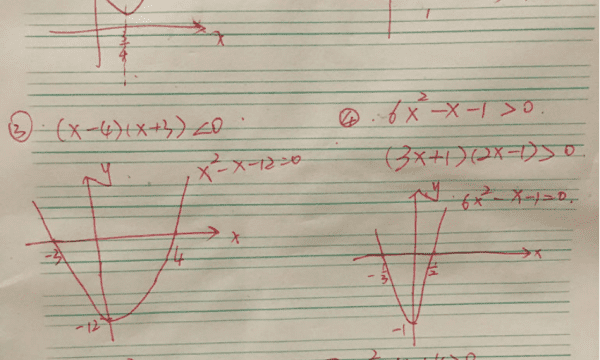 3/4
x
1
③ (x-4)(x+3)<0
x²-x-12=0
y
x
-3
4
-12
④ 6x²-x-1>0
(3x+1)(2x-1)>0
y
6x²-x-1=0.
x
-1/3
1/2
-1